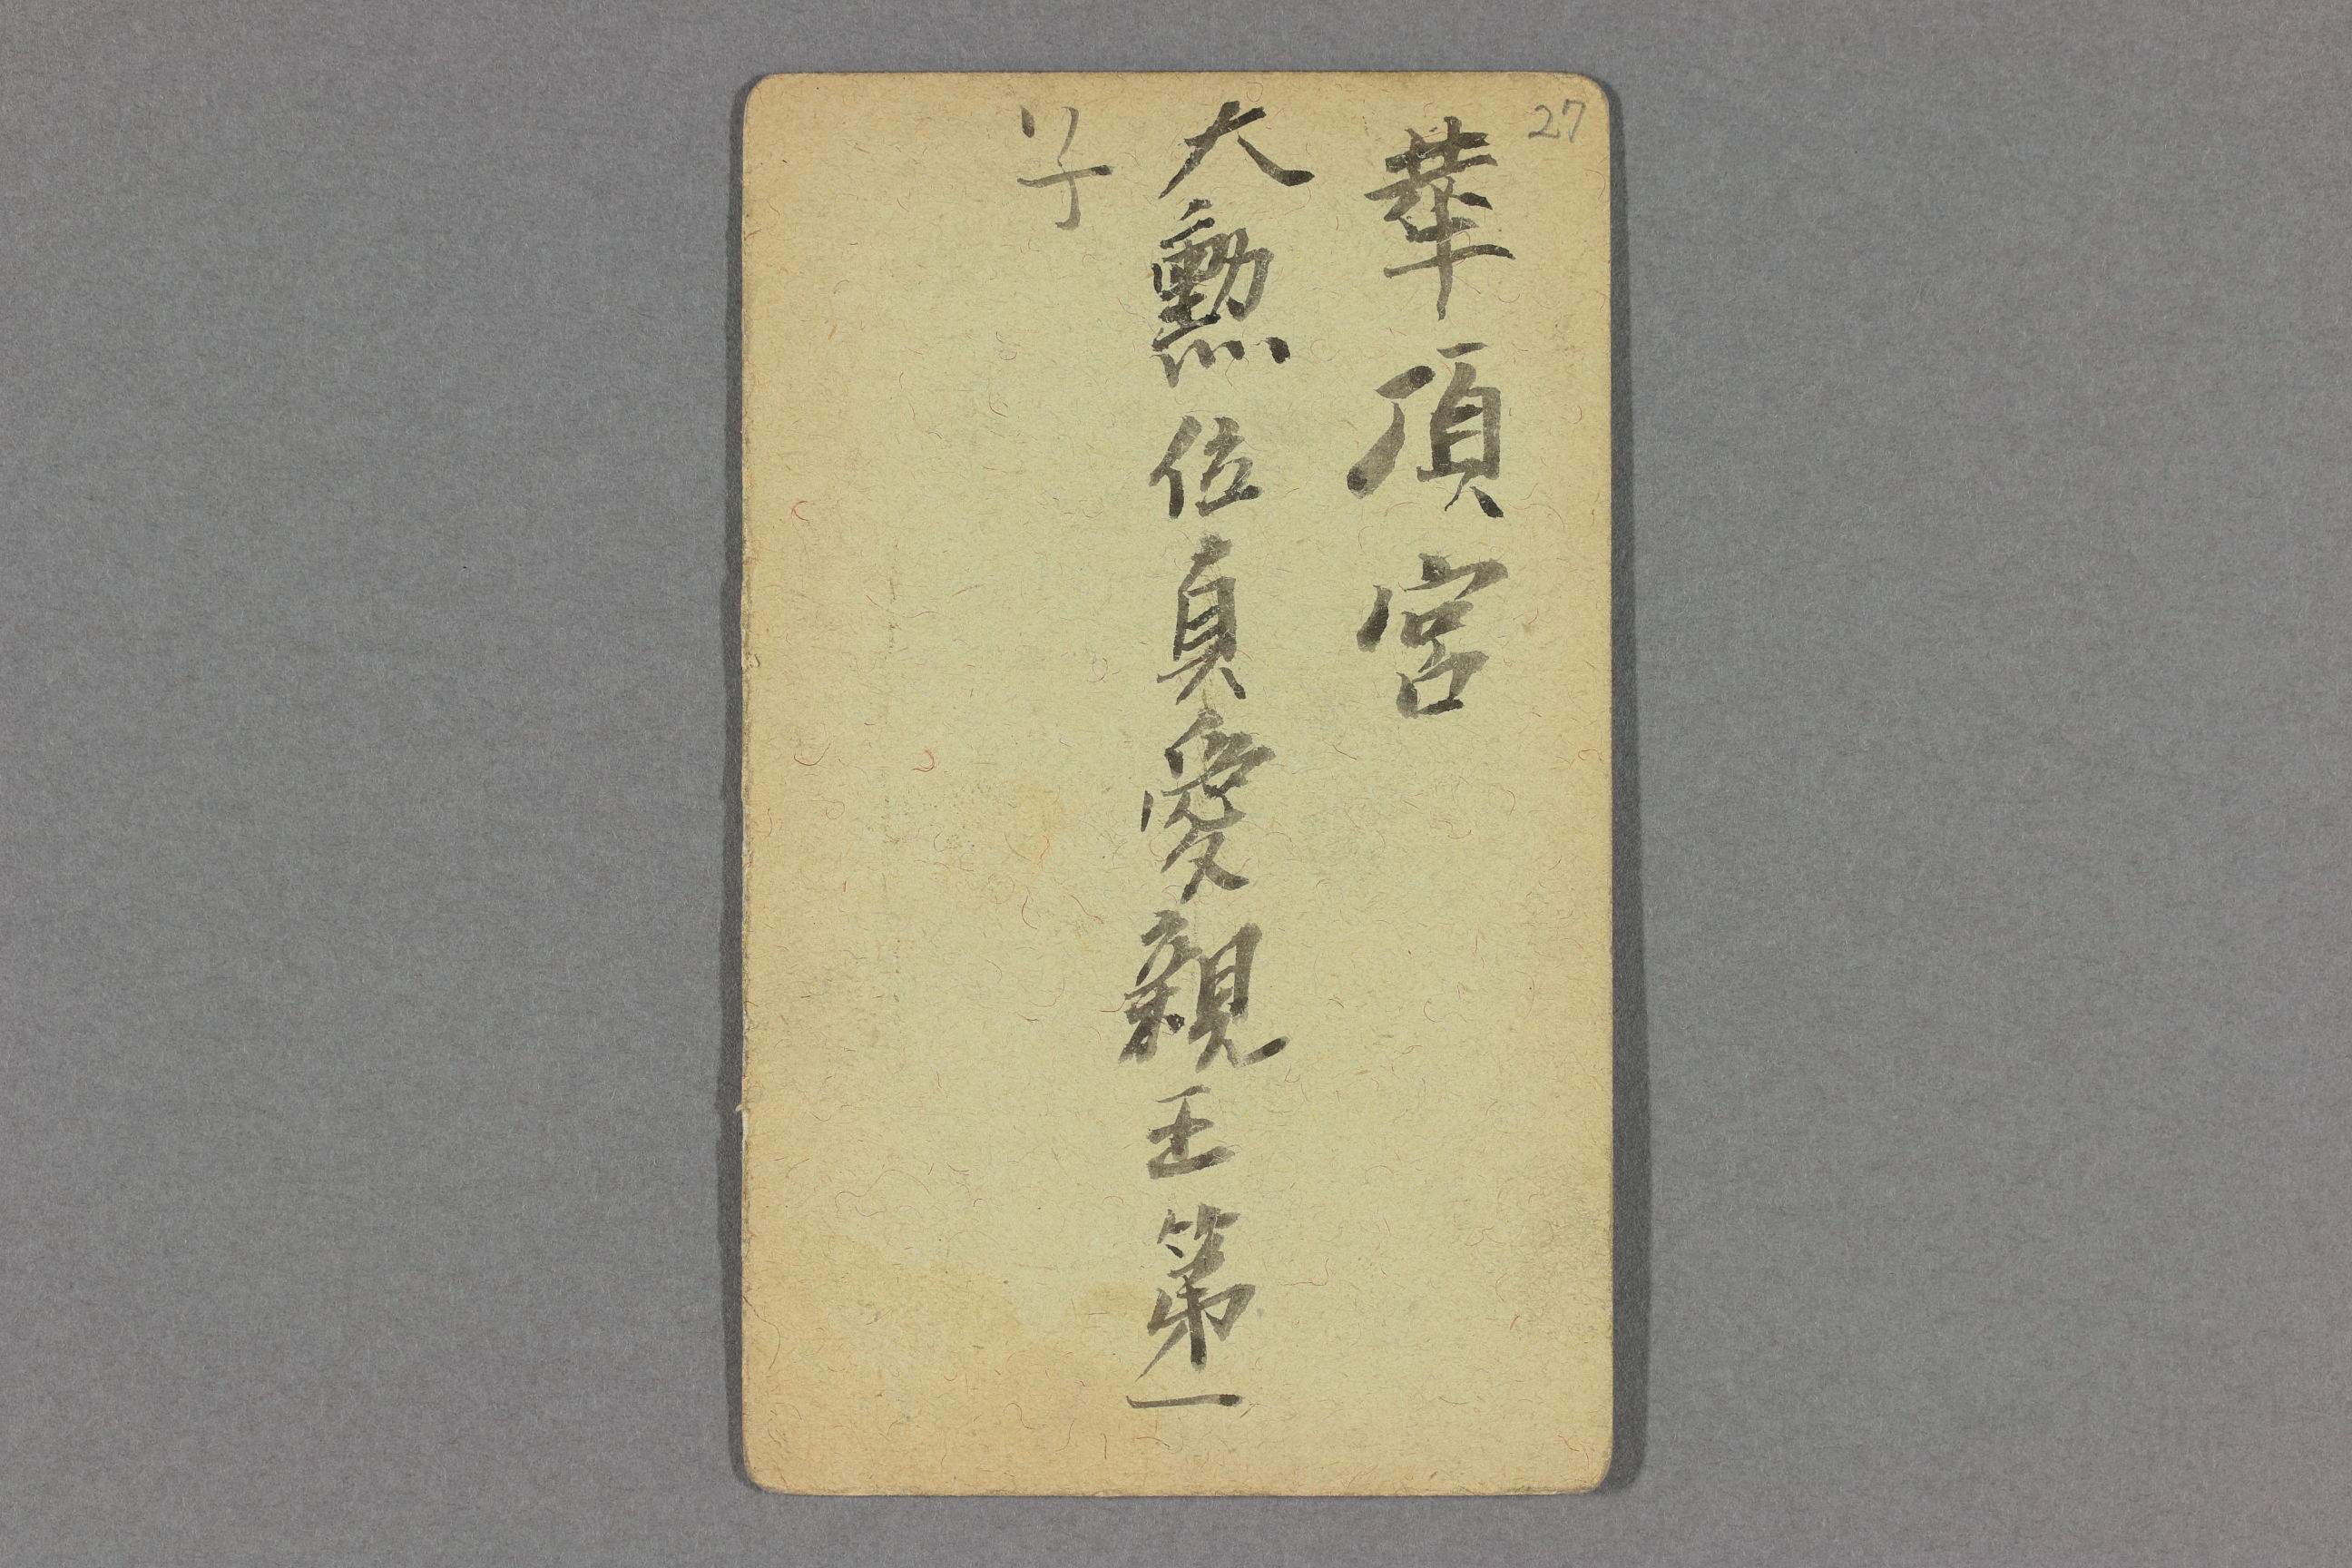 27
華頂宮
大勲位貞愛親王第一
子